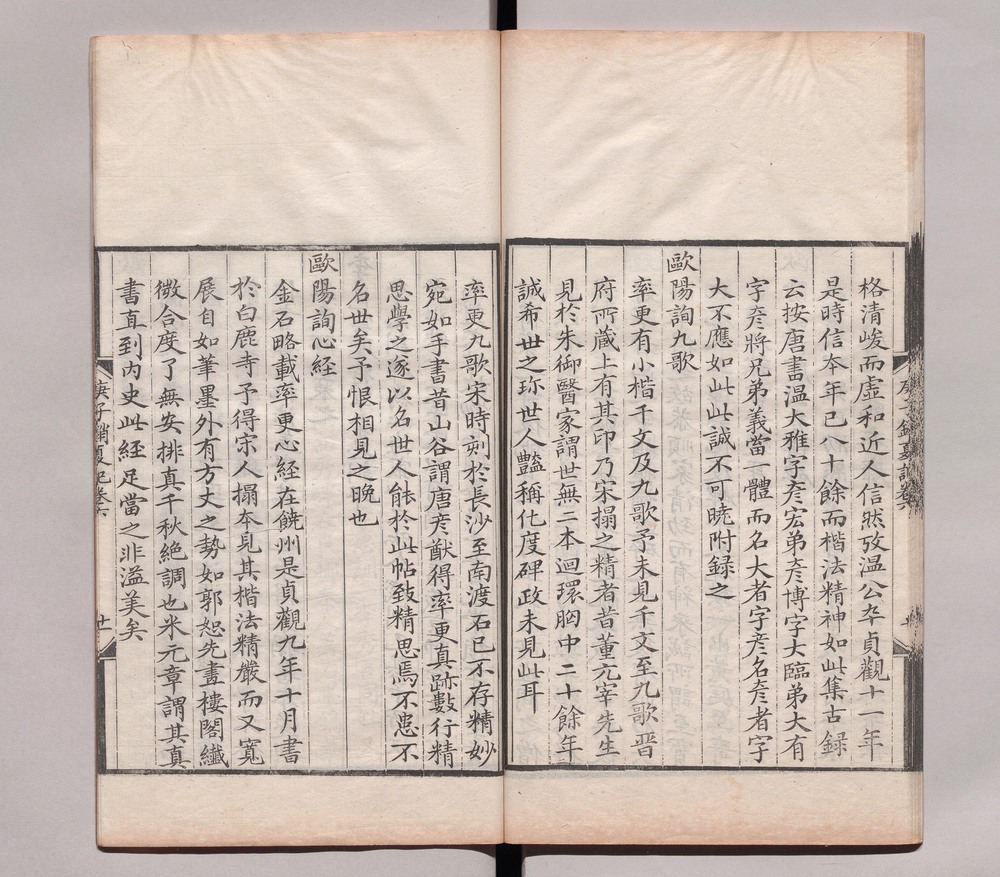 格清峻而虛和近人信然攷溫公卒貞觀十一年
是時信本年已八十餘而楷法精神如此集古録
云按唐書溫大雅字彦宏弟彦博字大臨弟大有
字彦將兄弟義當一體而名大者字彦名彦者字
大不應如此此誠不可曉附録之
歐陽詢九歌
率更有小楷千文及九歌予未見千文至九歌晋
府所藏上有其印乃宋搨之精者昔董元宰先生
見於朱御醫家謂世無二本迴環胸中二十餘年
誠希世之珎世人豔稱化度碑政未見此耳
率更九歌宋時刻於長沙至南渡石已不存精妙
宛如手書昔山谷謂唐彦猷得率更真跡數行精
思學之遂以名世人能於此帖致精思焉不患不
名世矣予恨相見之晚也
歐陽詢心經
金石略載率更心經在饒州是貞觀九年十月書
於白鹿寺予得宋人搨本見其楷法精嚴而又寬
展自如筆墨外有方丈之勢如郭恕先畫樓閣纎
微合度了無安排真千秋絶調也米元章謂其真
書直到内史此經足當之非溢美矣
庚子銷夏記卷六
廿